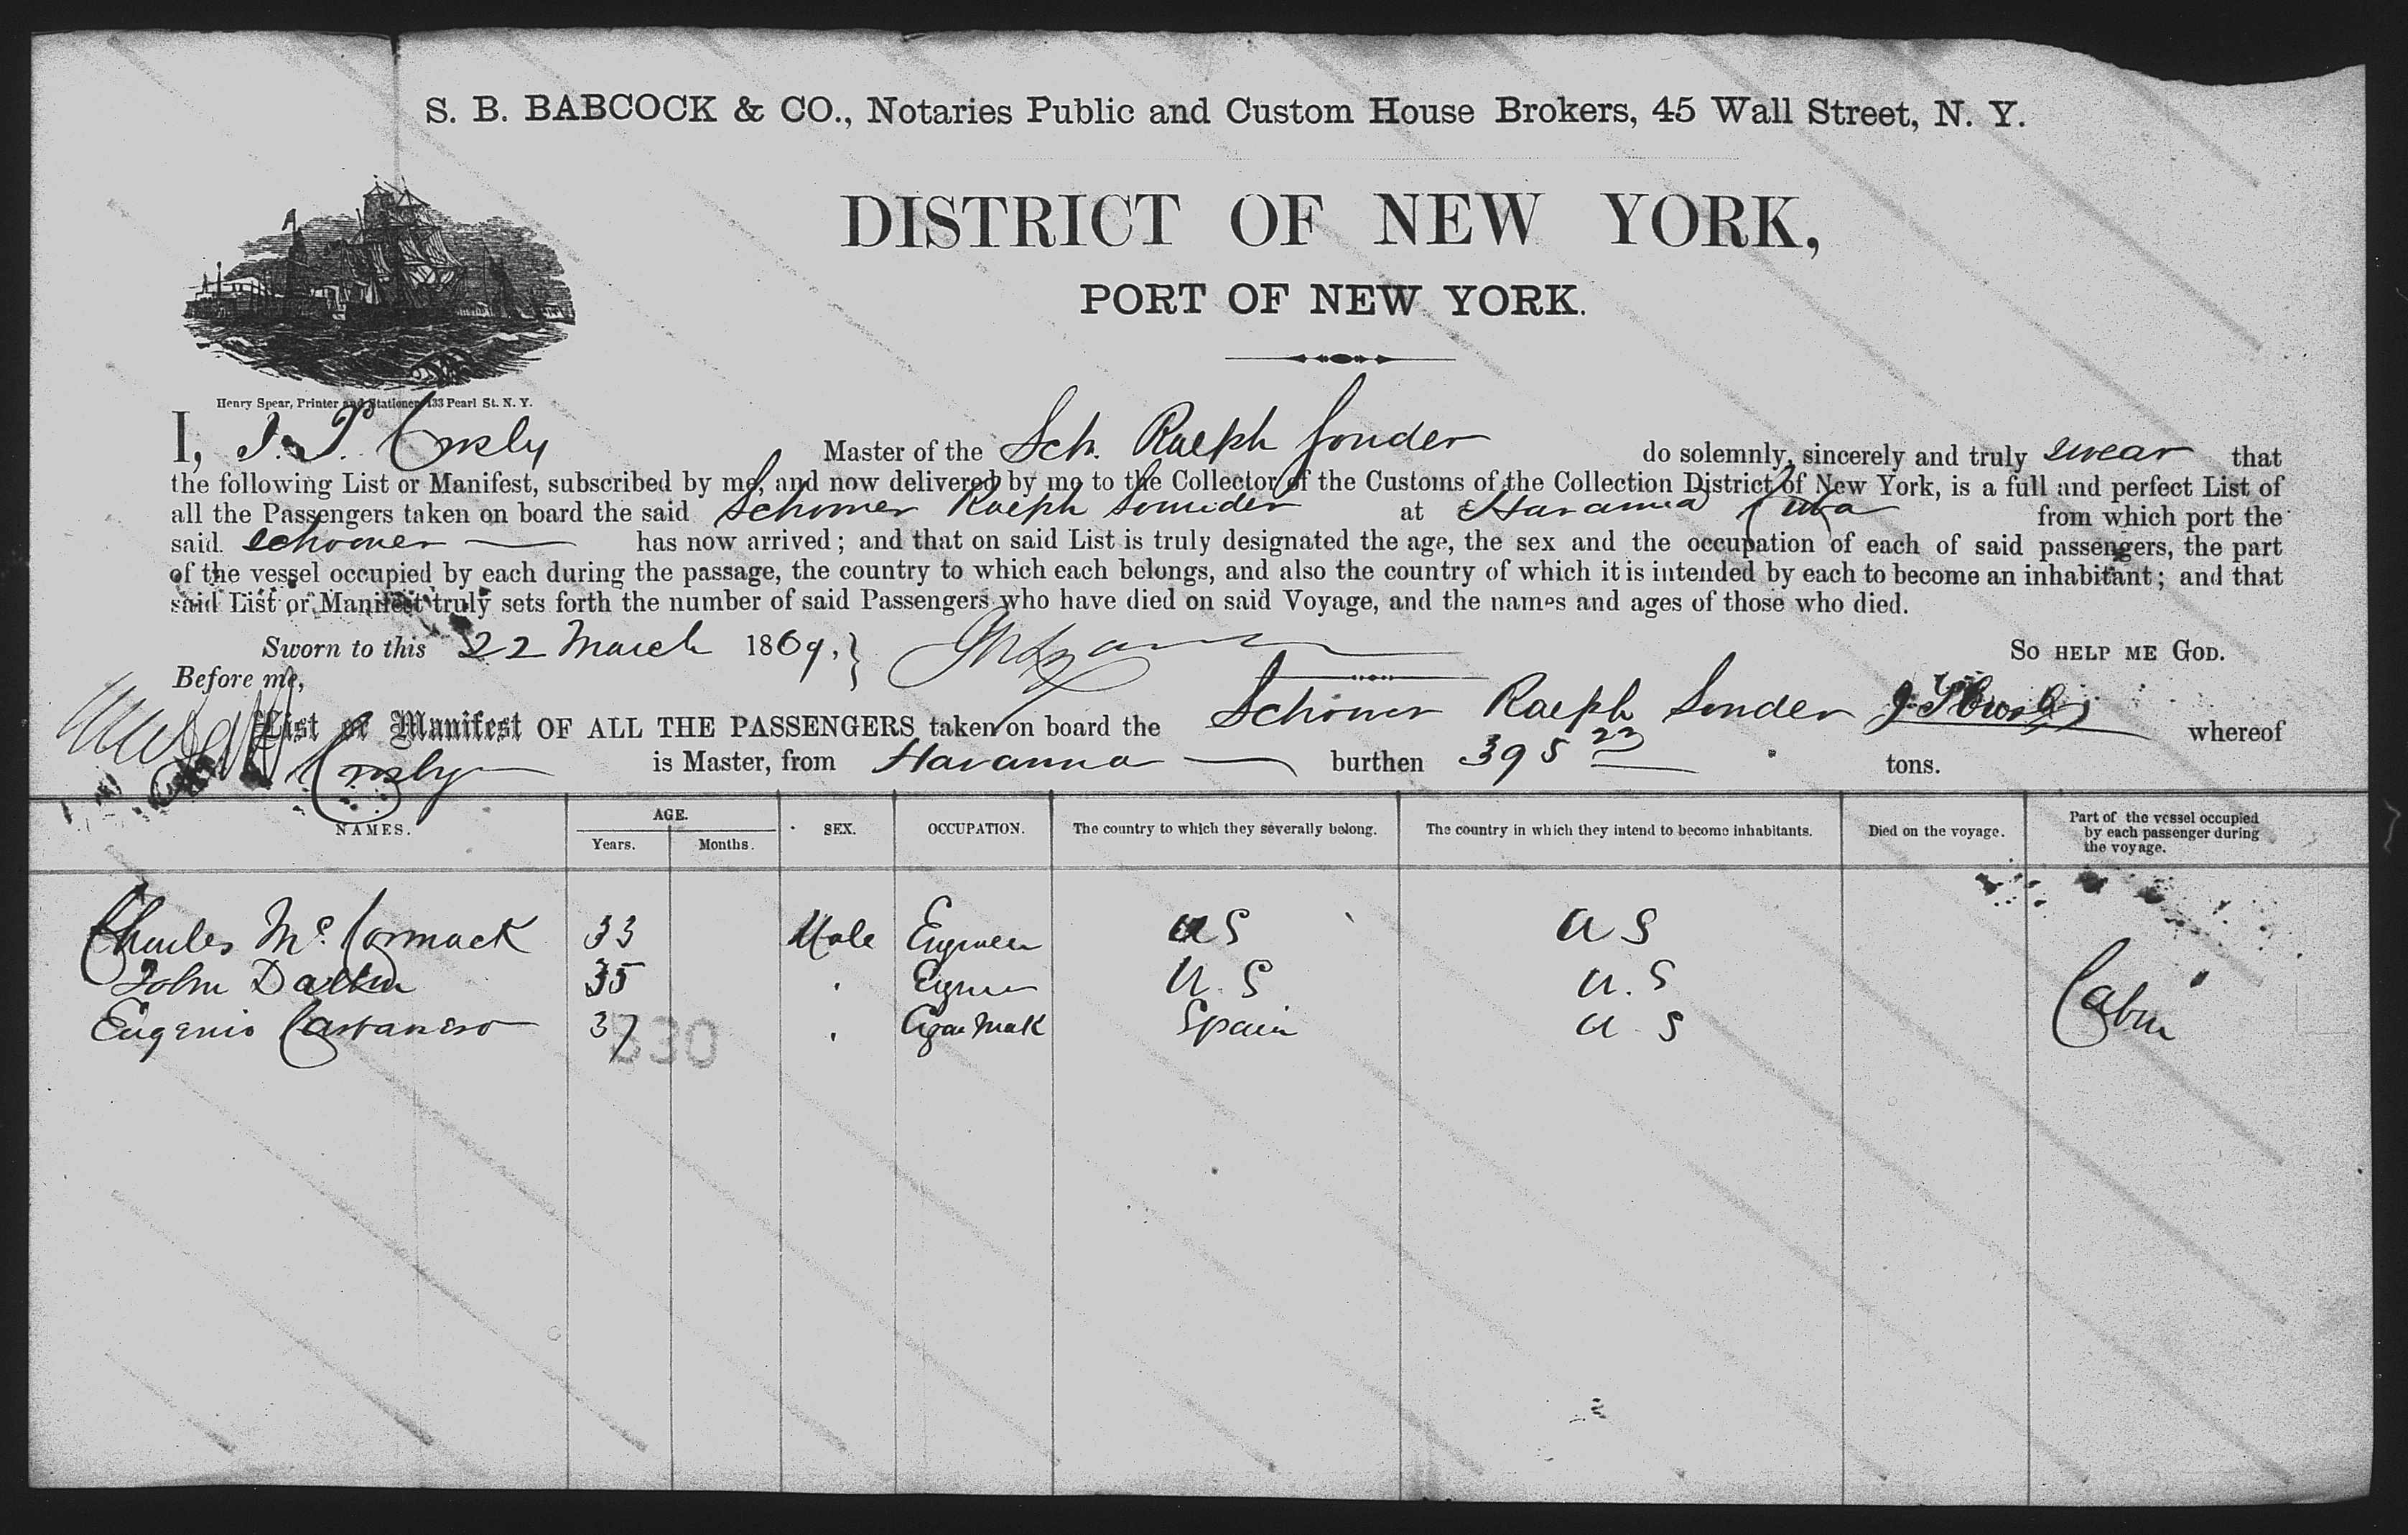 S. B. BABCOCK & CO., Notaries Public and Custom House Brokers, 45 Wall Street, N. Y.
DISTRICT OF NEW YORK,
PORT OF NEW YORK.
Henry Spear, Printer and Stationer, 133 Pearl St. N. Y.
I, J. T. Crosby Master of the Sch. Ralph Souder do solemnly, sincerely and truly swear that
the following List or Manifest, subscribed by me, and now delivered by me to the Collector of the Customs of the Collection District of New York, is a full and perfect List of
all the Passengers taken on board the said Schooner Ralph Souder at Havanna Cuba from which port the
said schooner has now arrived; and that on said List is truly designated the age, the sex and the occupation of each of said passengers, the part
of the vessel occupied by each during the passage, the country to which each belongs, and also the country of which it is intended by each to become an inhabitant; and that
said List or Manifest truly sets forth the number of said Passengers who have died on said Voyage, and the names and ages of those who died.
Sworn to this 22 March 1869, SO HELP ME GOD.
Before me,
List or Manifest OF ALL THE PASSENGERS taken on board the Schooner Ralph Souder J T Crosby whereof
Crosby is Master, from Havanna burthen 395 23 tons.
NAMES. AGE. Years. Months. SEX. OCCUPATION. The country to which they severally belong. The country in which they intend to become inhabitants. Died on the voyage. Part of the vessel occupied by each passenger during the voyage.
Charles Mc Cormack 33 Male Engineer U S U S
John 35 " Engineer U. S U. S Cabin
Eugenio 37 " Cigar Mak Spain U S
330